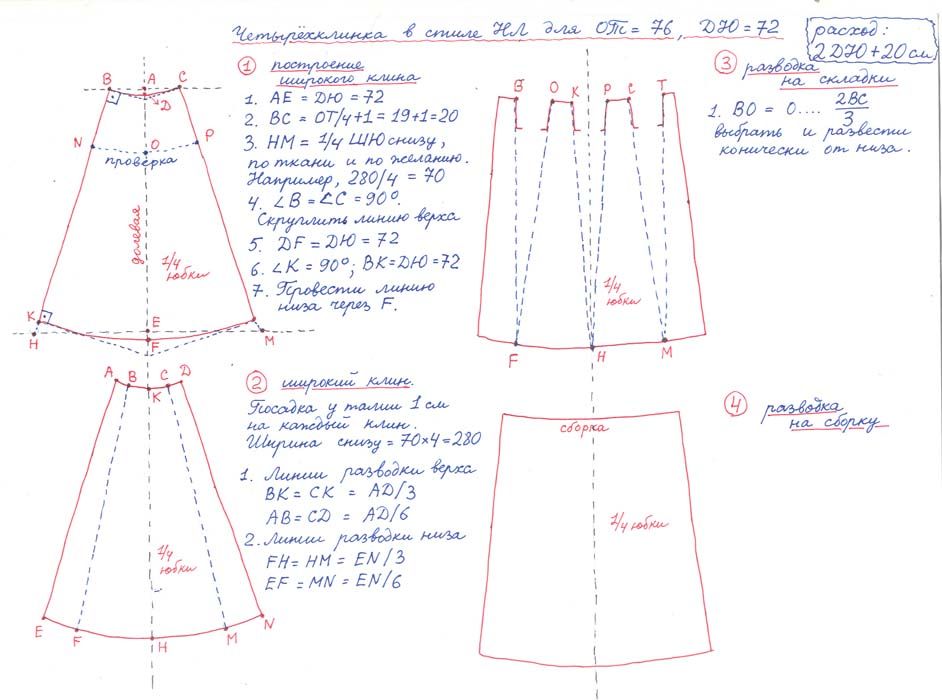 Четырёхклинка в стиле НЛ для ОТ = 76, ДЮ = 72
расход:
2ДЮ + 20 см
① построение
широкого клина
1. AE = ДЮ = 72
2. BC = ОТ/4+1 = 19+1=20
3. HM = 1/4 ШЮ снизу,
по ткани и по желанию.
Например, 280/4 = 70
4. ∠B = ∠C = 90°.
Скруглить линию верха
5. DF = ДЮ = 72
6. ∠K = 90°; BK=ДЮ=72
7. Провести линию
низа через F.
B A C
D
N O P
проверка
долевая
1/4
юбки
K E
H F M
② широкий клин.
Посадка у талии 1 см
на каждый клин.
Ширина снизу = 70×4=280
1. Линии разводки верха
BK = CK = AD/3
AB = CD = AD/6
2. Линии разводки низа
FH = HM = EN/3
EF = MN = EN/6
A B C D
K
1/4
юбки
E F H M N
③ разводка
на складки
1. BO = O.... 2BC/3
выбрать и развести
конически от низа.
B O K P C T
1/4
юбки
F H M
④ разводка
на сборку
сборка
1/4 юбки